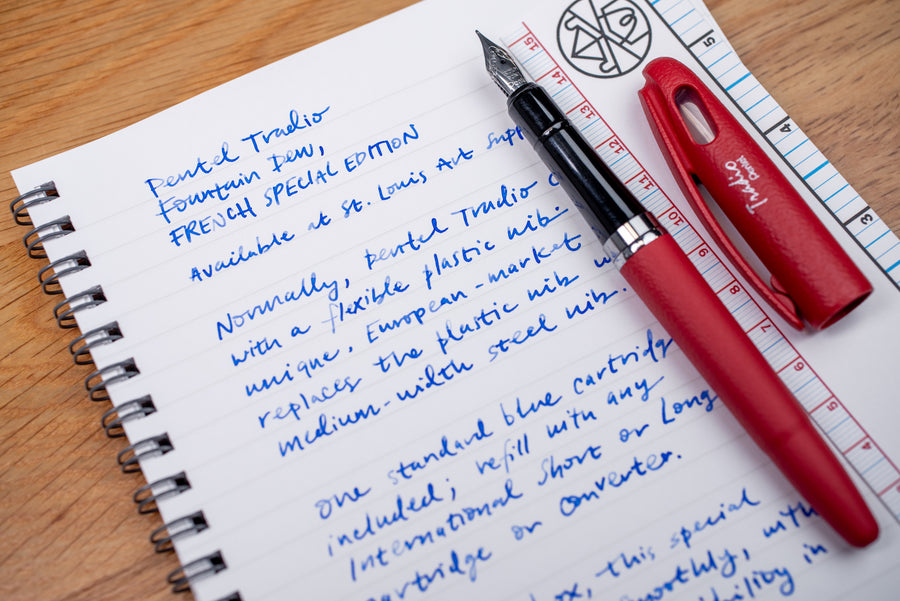 Pentel Tradio
Fountain Pen,
FRENCH SPECIAL EDITION
Available at St. Louis Art
Normally, Pentel Tradio
with a flexible plastic nib.
unique, European-market
replaces the plastic nib
medium-width steel nib.
One standard blue cartridge
included; refill with any
International Short or Long
cartridge or converter.
this special
smoothly, with
in
Tradio
Pentel
15
14
13
12
11
10
9
8
7
6
5
4
5
4
3